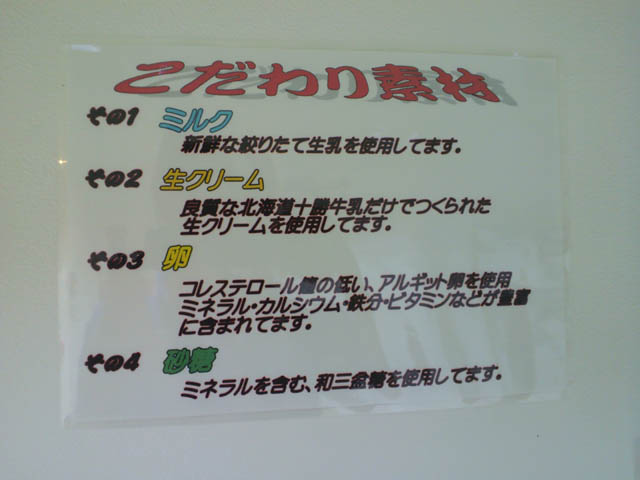 こだわり素材
その1 ミルク
新鮮な絞りたて生乳を使用してます。
その2 生クリーム
良質な北海道十勝牛乳だけでつくられた
生クリームを使用してます。
その3 卵
コレステロール値の低い、アルギット卵を使用
ミネラル・カルシウム・鉄分・ビタミンなどが豊富
に含まれてます。
その4 砂糖
ミネラルを含む、和三盆糖を使用してます。